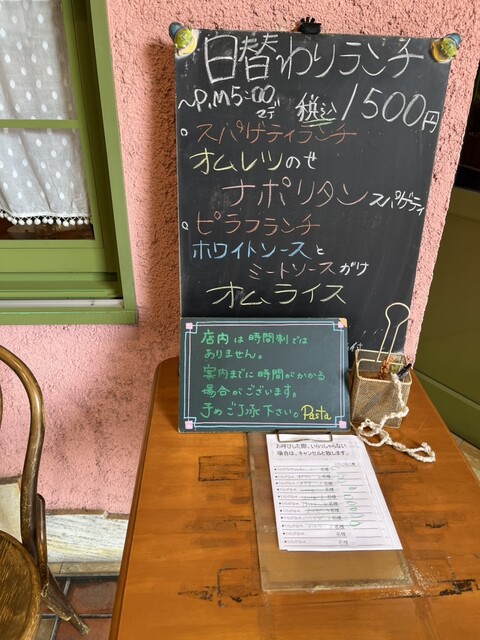 日替わりランチ
～P.M5:00まで 税込 1500円
スパゲティランチ
オムレツのせ
ナポリタン スパゲティ
ピラフランチ
ホワイトソースと
ミートソースがけ
オムライス
店内は時間制では
ありません。
案内までに時間がかかる
場合がございます。
予めご了承下さい。Pasta
お呼びした際、いらっしゃらない
場合は、キャンセルと致します。